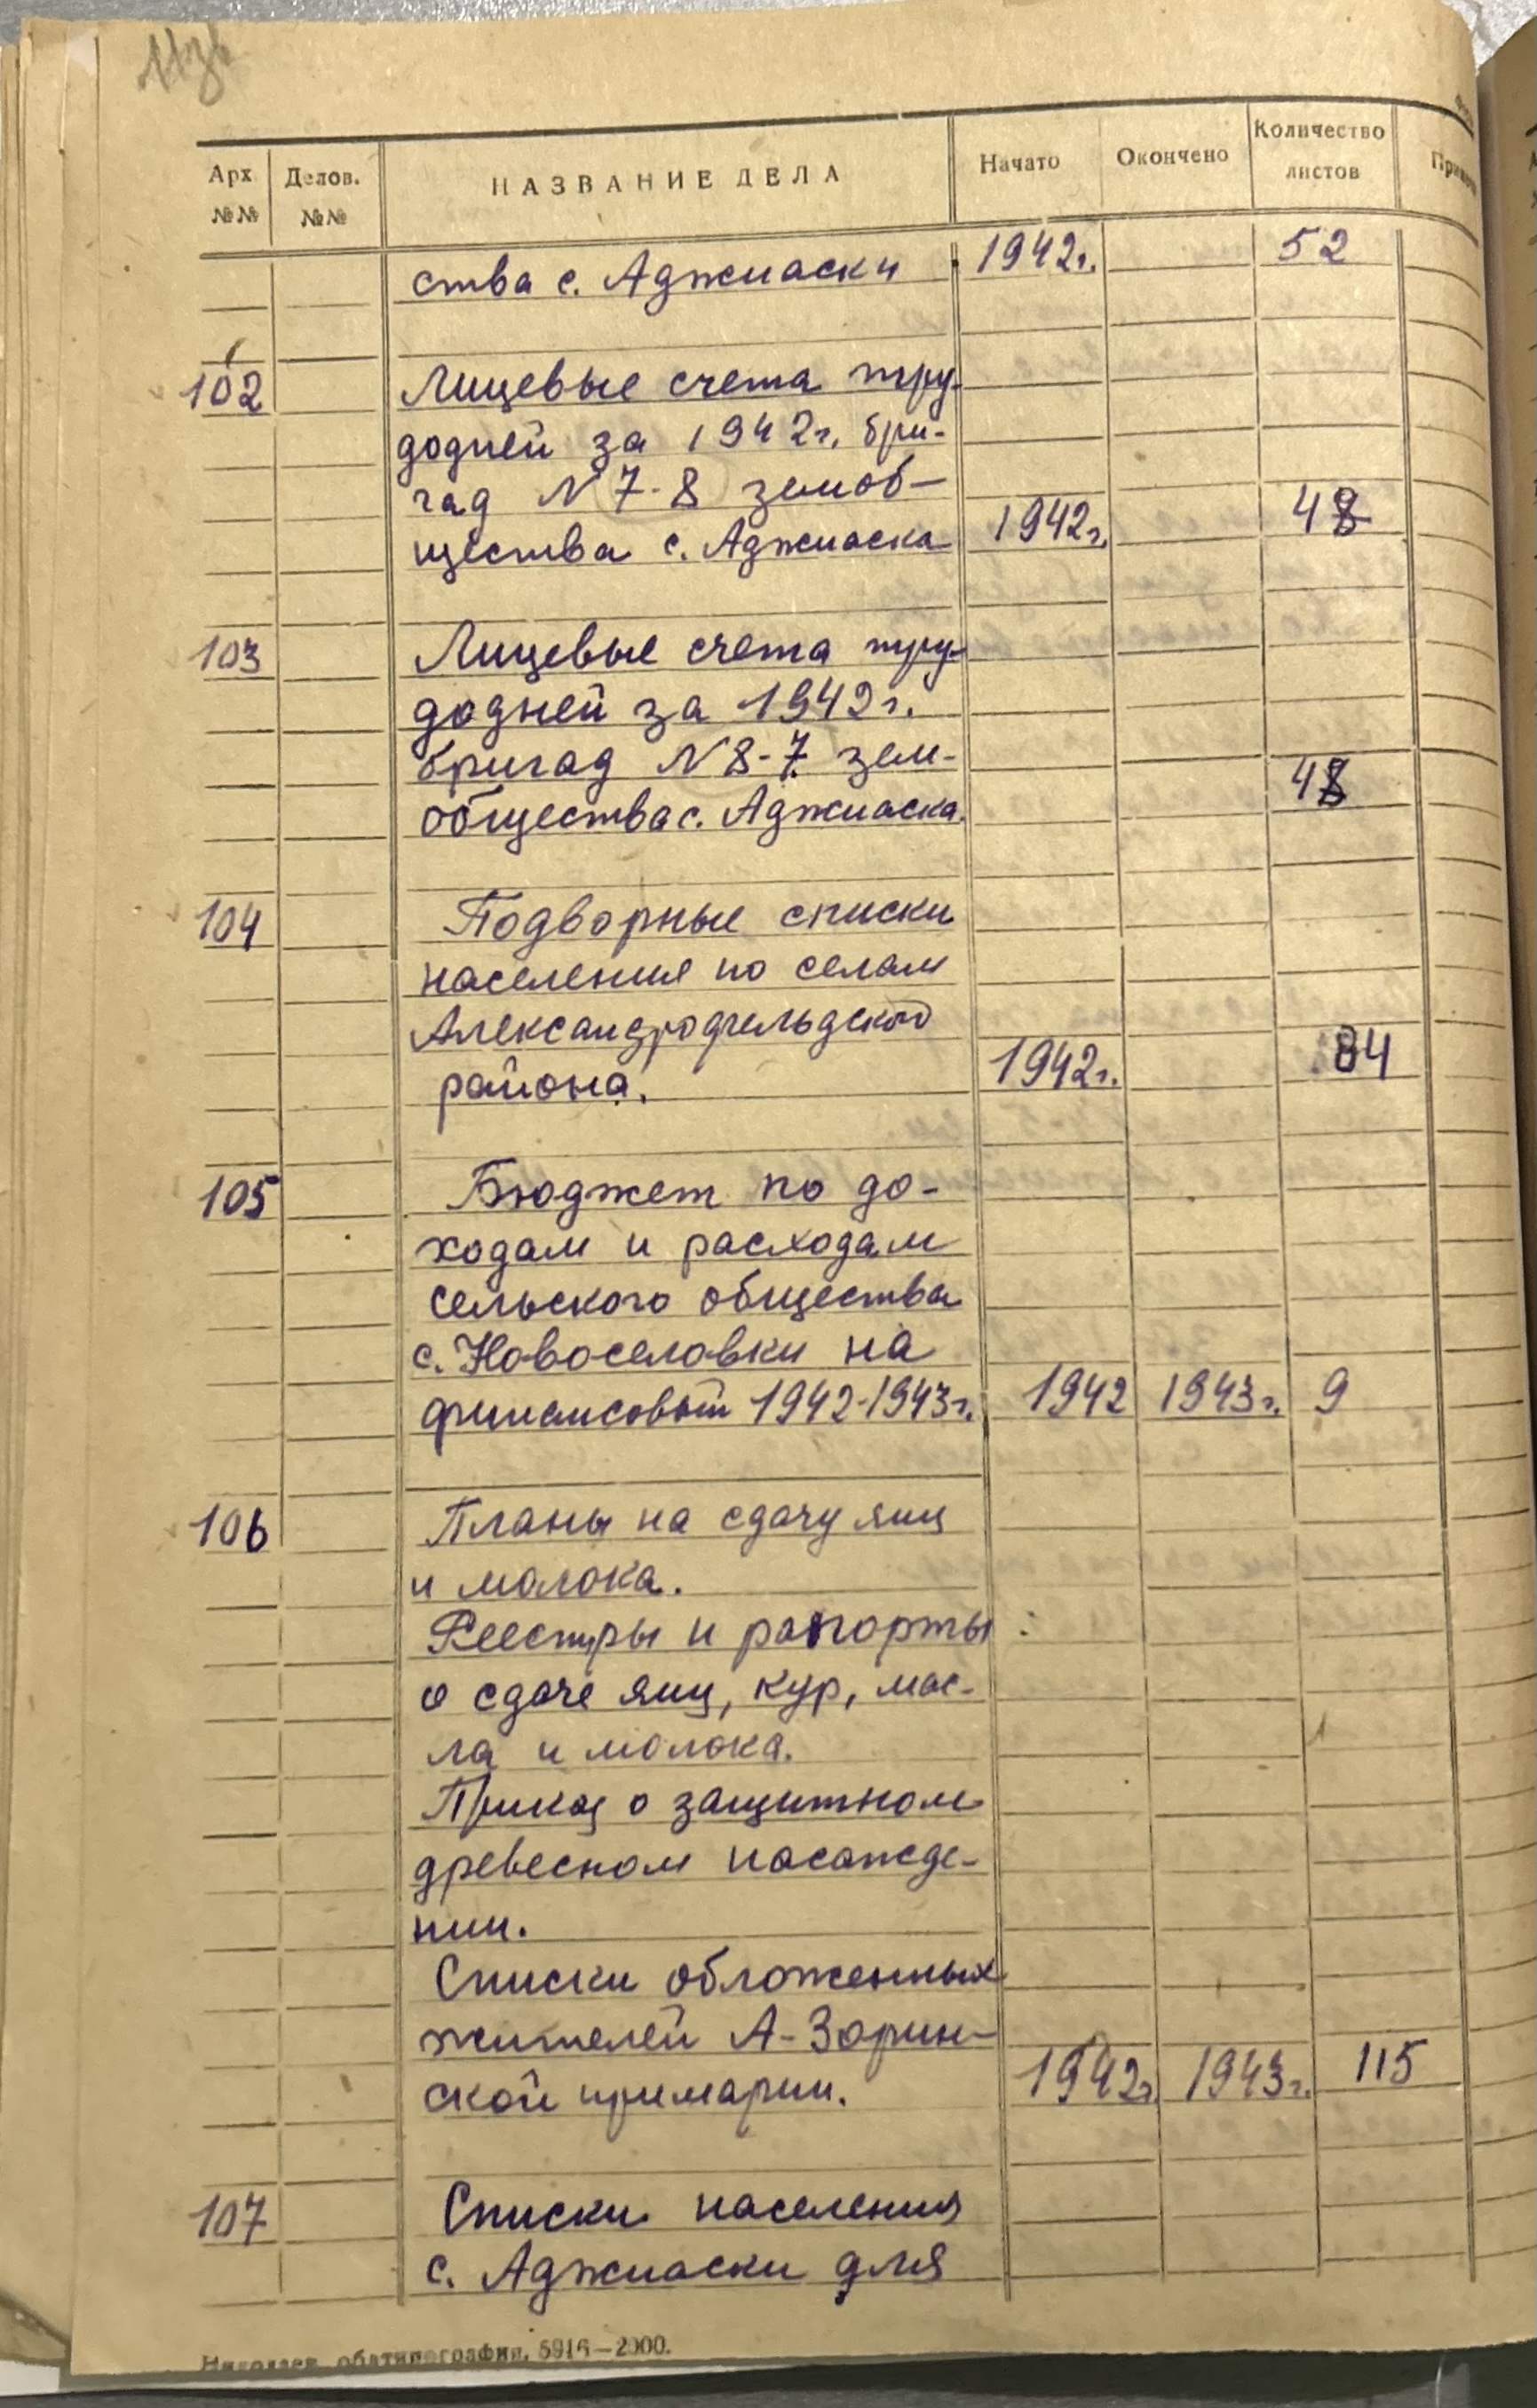 Арх №№ Делов. №№ НАЗВАНИЕ ДЕЛА Начато Окончено Количество листов
ства с. Аджиаски 1942г. 52
102 Лицевые счета тру-
додней за 1942г. бри-
гад N 7-8 земоб-
щества с. Аджиаска 1942г. 48
103 Лицевые счета тру-
додней за 1942г.
бригад N 8-7 зем-
общества с. Аджиаска. 48
104 Подворные списки
населения по селам
Александрофельдской
района. 1942г. 84
105 Бюджет по до-
ходам и расходам
сельского общества
с. Новоселовки на
финансовый 1942-1943г. 1942 1943г. 9
106 Планы на сдачу яиц
и молока.
Реестры и рапорты
о сдаче яиц, кур, мас-
ла и молока.
Приказ о защитном
древесном насажде-
нии.
Списки обложенных
жителей А-Зорин-
ской примарии. 1942г. 1943г. 115
107 Списки населения
с. Аджиаски для
Николаев, облтипография, 5916—2000.